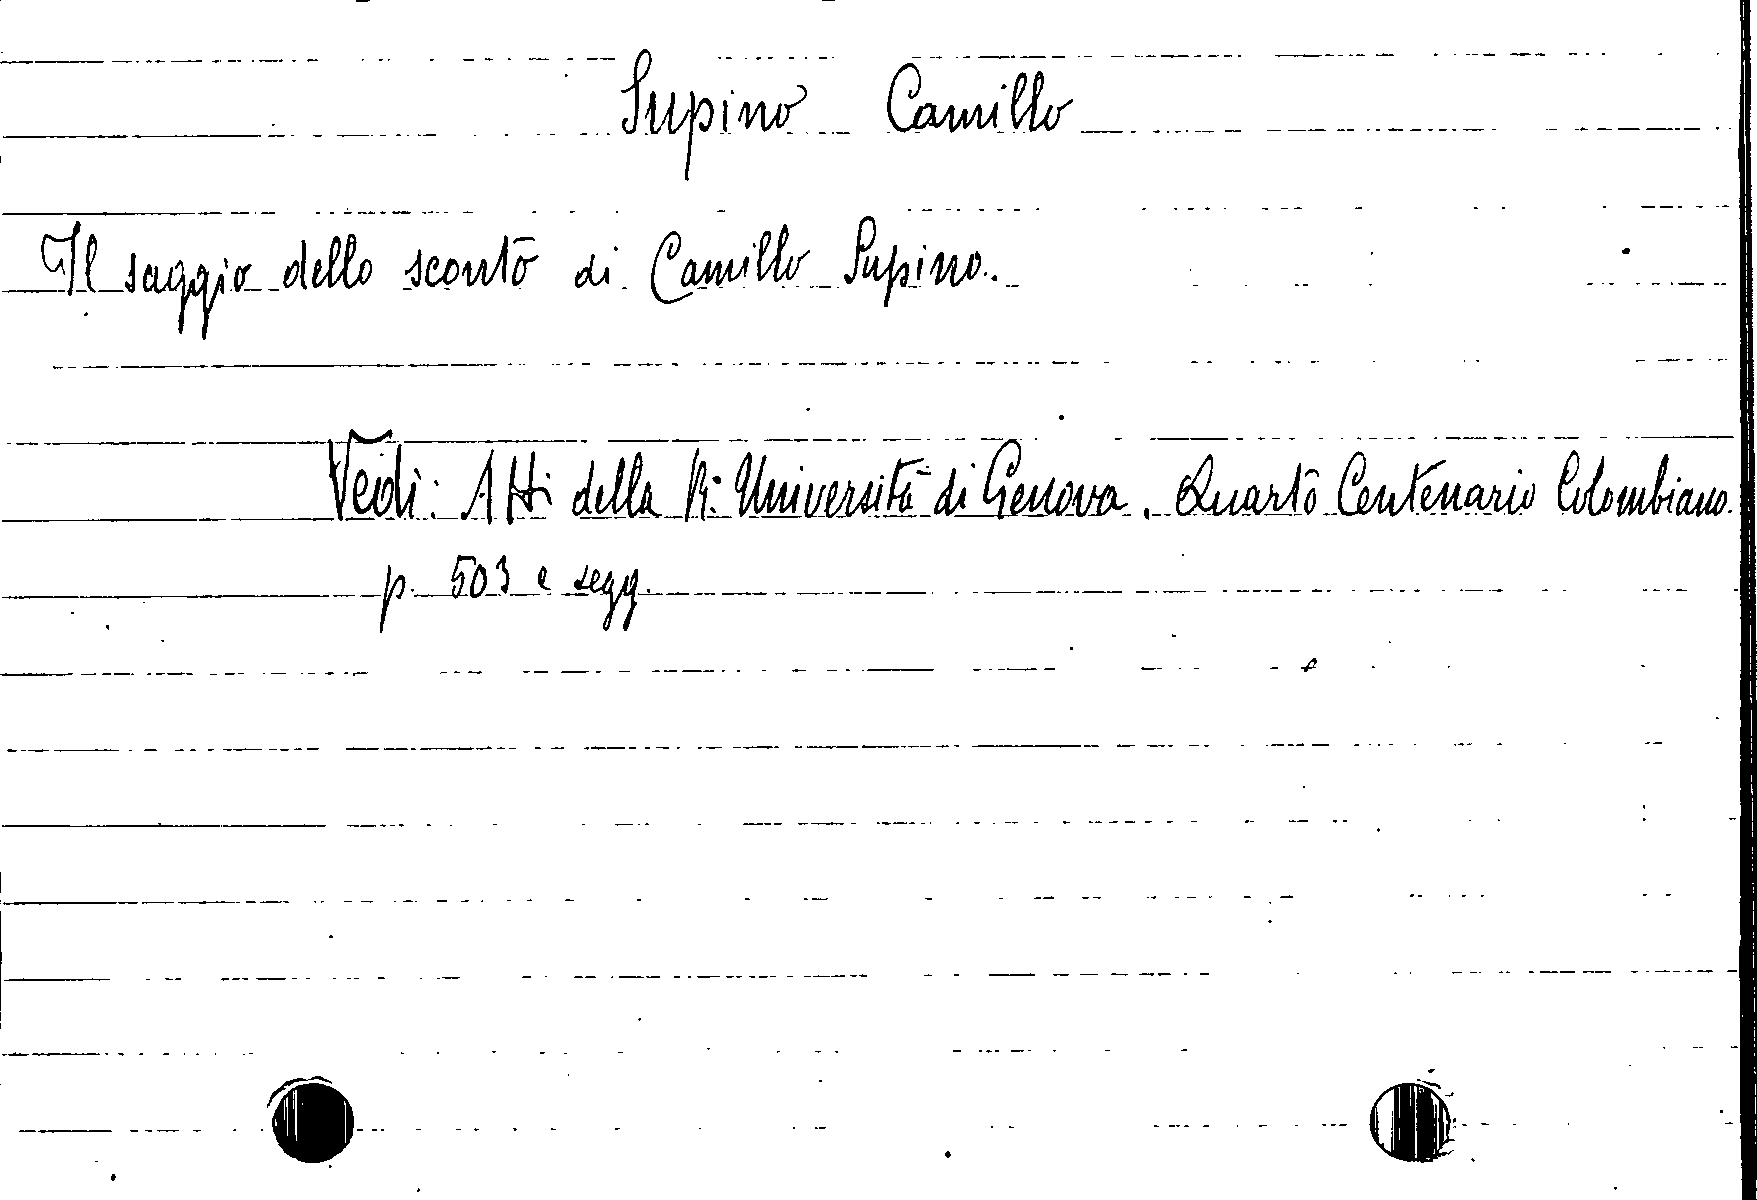 Supino Camillo
Il saggio dello sconto di Camillo Supino.
Vedi: Atti della R. Università di Genova. Quarto Centenario Colombiano.
p. 503 e segg.